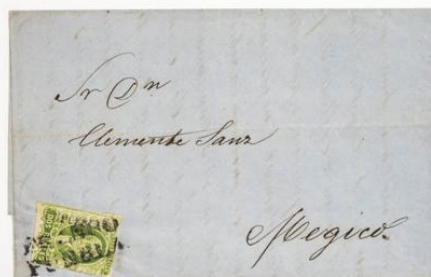 Sr Dn
Clemente Sanz
Megico.